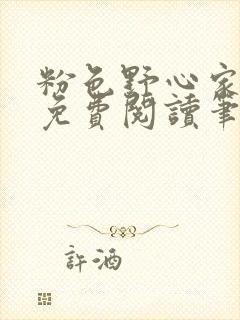 粉色野心家
免費閱讀筆
許酒